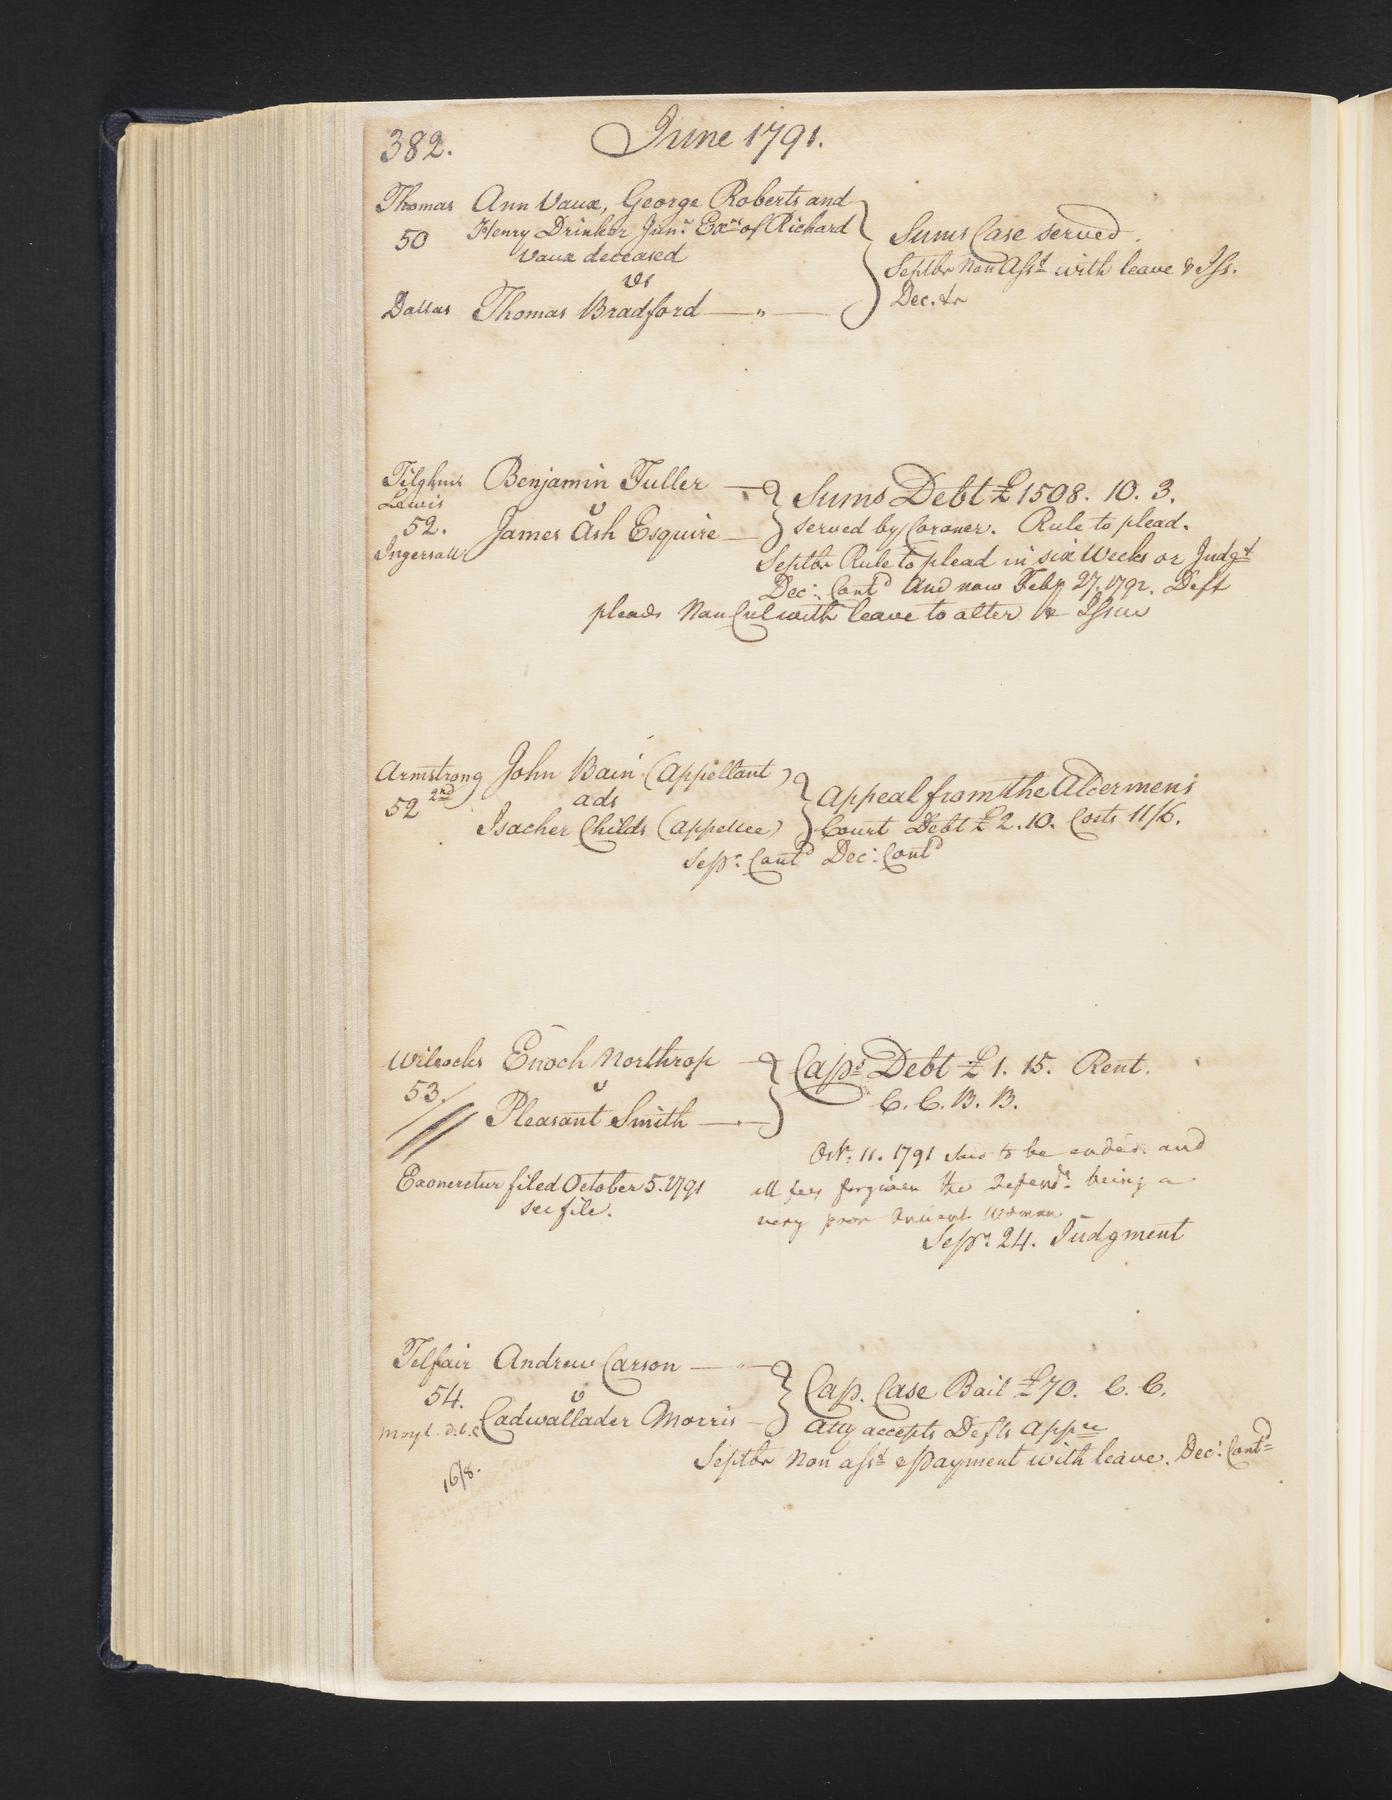 382. June 1791.
Thomas Ann Vaux, George Roberts and
50 Henry Drinker Junr. Exrs of Richard Sums Case served.
Vaux deceased Septbr Non Asst with leave & Iss.
vs Dec. &c
Dallas Thomas Bradford
Tilghman Benjamin Fuller Sums Debt £1508. 10. 3.
Lewis v
52. James Ash Esquire served by Coroner. Rule to plead.
Ingersoll Septbr Rule to plead in six Weeks or Judgt
Dec: Contd And now Feby 27. 1792. Deft
pleads Non Cul with leave to alter & Issue
Armstrong John Bain (Appellant) Appeal from the Aldermens
52 2nd ads
Isacher Childs (Appellee) Court Debt £2.10. Costs 11/6.
Sepr. Contd Dec: Contd
Wilcocks Enoch Northrop Caps Debt £1. 15. Rent.
53. v C. C. B. B.
Pleasant Smith
Octr. 11. 1791 to be ended and
Exoneretur filed October 5. 1791 all fees forgiven the Defendt. being a
see file. very poor Ancient Woman
Sepr. 24. Judgment
Telfair Andrew Carson Cap. Case Bail £70. C. C.
54. v
Moyl. Cadwallader Morris Atty accepts Defts appce
Septbr Non asst & payment with leave. Dec: Contd
16/8.